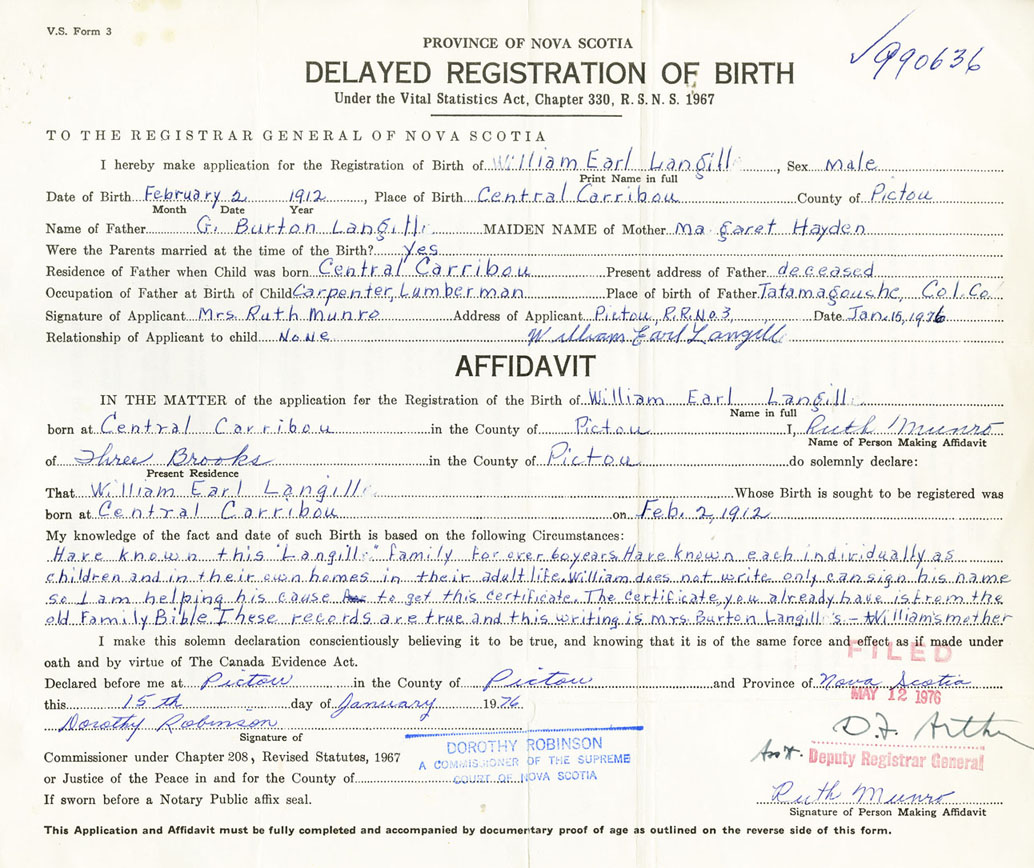 V.S. Form 3
990636
PROVINCE OF NOVA SCOTIA
DELAYED REGISTRATION OF BIRTH
Under the Vital Statistics Act, Chapter 330, R.S.N.S. 1967
TO THE REGISTRAR GENERAL OF NOVA SCOTIA
I hereby make application for the Registration of Birth of William Earl Langill, Sex Male
Print Name in full
Date of Birth February 2 1912, Place of Birth Central Carribou County of Pictou
Month Date Year
Name of Father G. Burton Langill MAIDEN NAME of Mother Ma garet Hayden
Were the Parents married at the time of the Birth? Yes
Residence of Father when Child was born Central Carribou Present address of Father deceased
Occupation of Father at Birth of Child Carpenter, Lumberman Place of birth of Father Tatamagouche, Col. Co.
Signature of Applicant Mrs. Ruth Munro Address of Applicant Pictou, R.R. No. 3 Date Jan. 15, 1976
Relationship of Applicant to child None William Earl Langill
AFFIDAVIT
IN THE MATTER of the application for the Registration of the Birth of William Earl Langill
Name in full
born at Central Carribou in the County of Pictou I, Ruth Munro
Name of Person Making Affidavit
of Three Brooks in the County of Pictou do solemnly declare:
Present Residence
That William Earl Langill Whose Birth is sought to be registered was
born at Central Carribou on Feb. 2, 1912
My knowledge of the fact and date of such Birth is based on the following Circumstances:
Have known this "Langill" family for over 60 years. Have known each individually as
children and in their own homes in their adult life. William does not write only can sign his name
so I am helping his cause to get this certificate. The certificate you already have is from the
old Family Bible. These records are true and this writing is Mrs. Burton Langill's - William's mother
I make this solemn declaration conscientiously believing it to be true, and knowing that it is of the same force and effect as if made under
oath and by virtue of The Canada Evidence Act.
FILED
Declared before me at Pictou in the County of Pictou and Province of Nova Scotia
MAY 12 1976
this 15th day of January 1976.
Dorothy Robinson
Signature of
D.F. Arthur
DOROTHY ROBINSON
Commissioner under Chapter 208, Revised Statutes, 1967
A COMMISSIONER OF THE SUPREME
Ass't. Deputy Registrar General
or Justice of the Peace in and for the County of
COURT OF NOVA SCOTIA
If sworn before a Notary Public affix seal.
Ruth Munro
Signature of Person Making Affidavit
This Application and Affidavit must be fully completed and accompanied by documentary proof of age as outlined on the reverse side of this form.